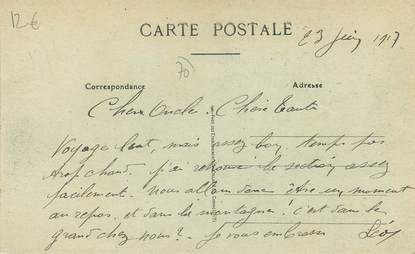 12 €
CARTE POSTALE
23 Juin 1917
70
Correspondance
Adresse
Cher Oncle. Chère Tante
Voyage lent, mais assez bon, temps pas
trop chaud. J'ai retrouvé la section assez
facilement. Nous allons donc être un moment
au repos, et dans les montagnes! c'est dans le
grand chez nous? - Je vous embrasse
Léo